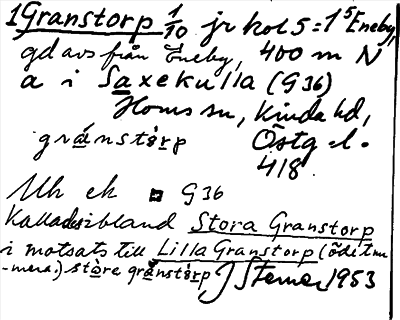 1 Granstorp 1/10 jr kol 5 = 1⁵ Eneby,
gd avs från Eneby, 400 m N
a i Saxekulla (G36)
Horns sn, Kinda hd,
gránstòrp Östg. l.
418.
Uh ek G36
Kallades ibland Stora Granstorp
i motsats till Lilla Granstorp (öde t.
-mera.) stòre gránstòrp J Sterner 1953